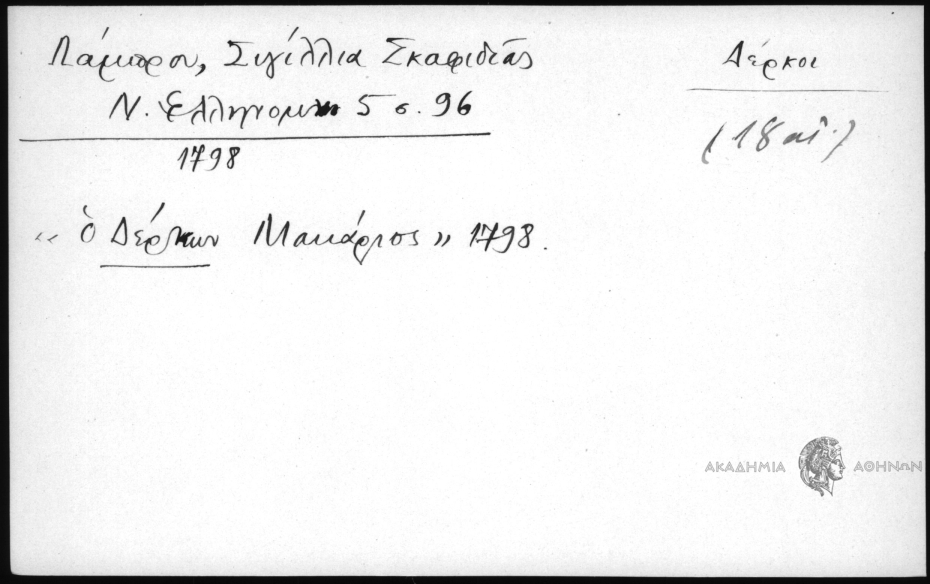 Λάμπρου, Σιγίλλια Σκαφιδιᾶς
Δέρκοι
Ν. Ἑλληνομν 5 σ. 96
(18 αἰ.)
1798
"ὁ Δέρκων Μακάριος" 1798.
ΑΚΑΔΗΜΙΑ ΑΘΗΝΩΝ